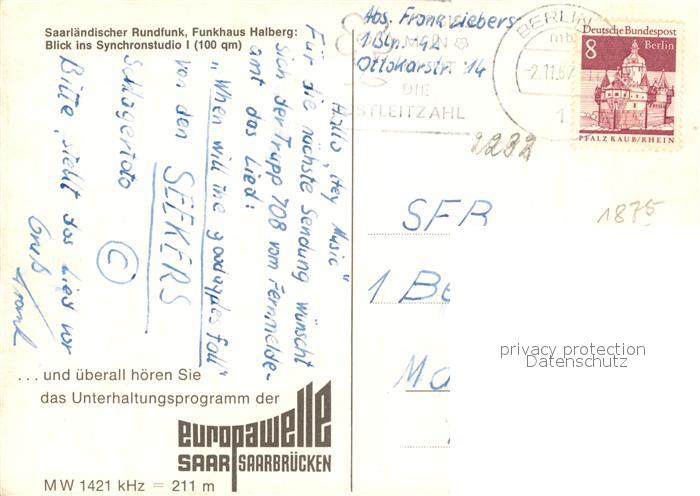 Saarländischer Rundfunk, Funkhaus Halberg:
Blick ins Synchronstudio I (100 qm)
Hallo „Hey Music"
Für die nächste Sendung wünscht
sich der Trupp 708 vom Fernmelde-
amt das Lied:
„When will the goodapples fall"
von den SEEKERS
Schlagertoto C
Bitte, stellt das Lied vor
Gruß
Frank
... und überall hören Sie
das Unterhaltungsprogramm der
europawelle
SAAR SAARBRÜCKEN
MW 1421 kHz = 211 m
Abs. Frank Siebers
1 Bln. 42
Ottokarstr. 14
DIE
STLEITZAHL
BERLIN
-2.11.67
1
Deutsche Bundespost
8 Berlin
PFALZ KAUB/RHEIN
2232
1875
SFB
1 Be
Ma
privacy protection
Datenschutz